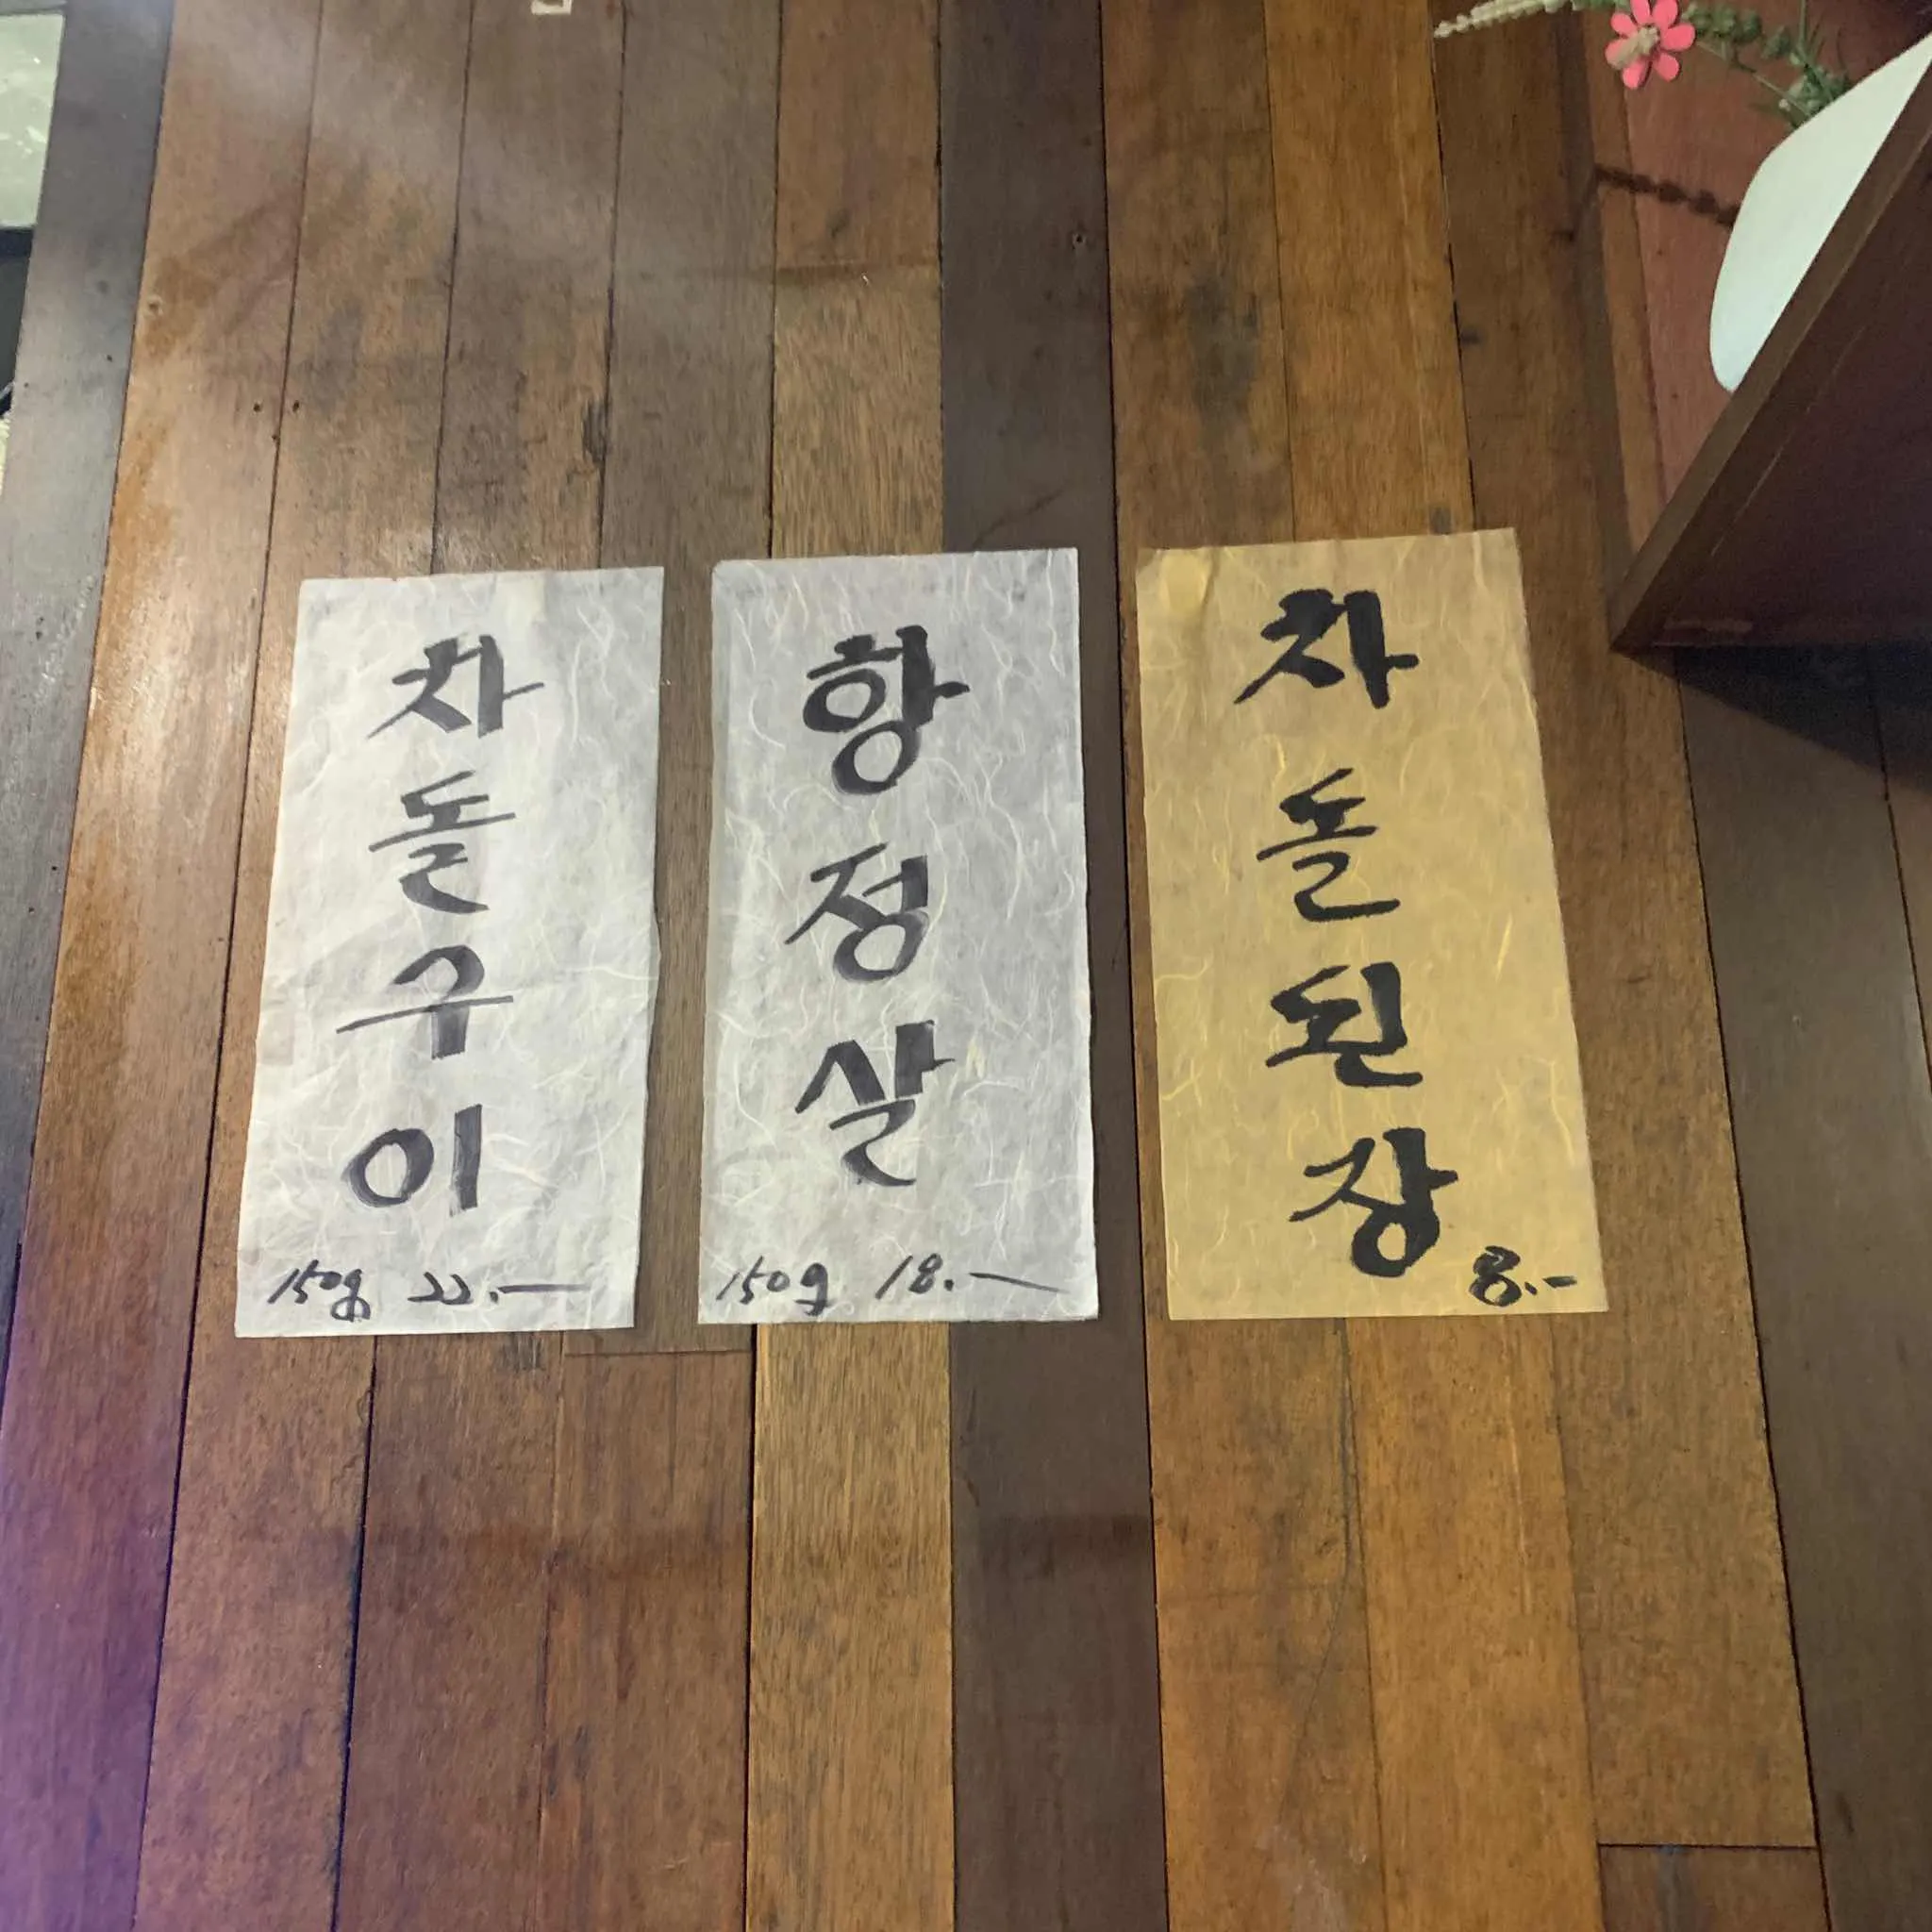 차돌구이
150g 22.-
항정살
150g 18.-
차돌된장
8.-